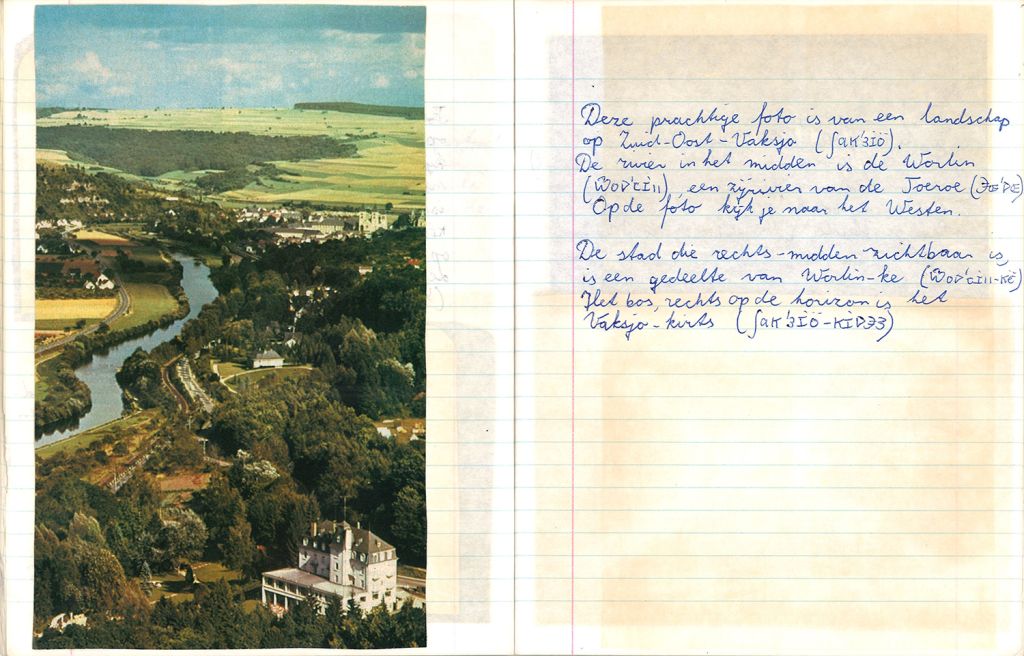 Deze prachtige foto is van een landschap
op Zuid-Oost-Vaksjo
De rivier in het midden is de Worlin
een zijrivier van de Joeroe
Op de foto kijk je naar het Westen.
De stad die rechts-midden zichtbaar is,
is een gedeelte van Worlin-ke
Het bos, rechts op de horizon is het
Vaksjo-kirts